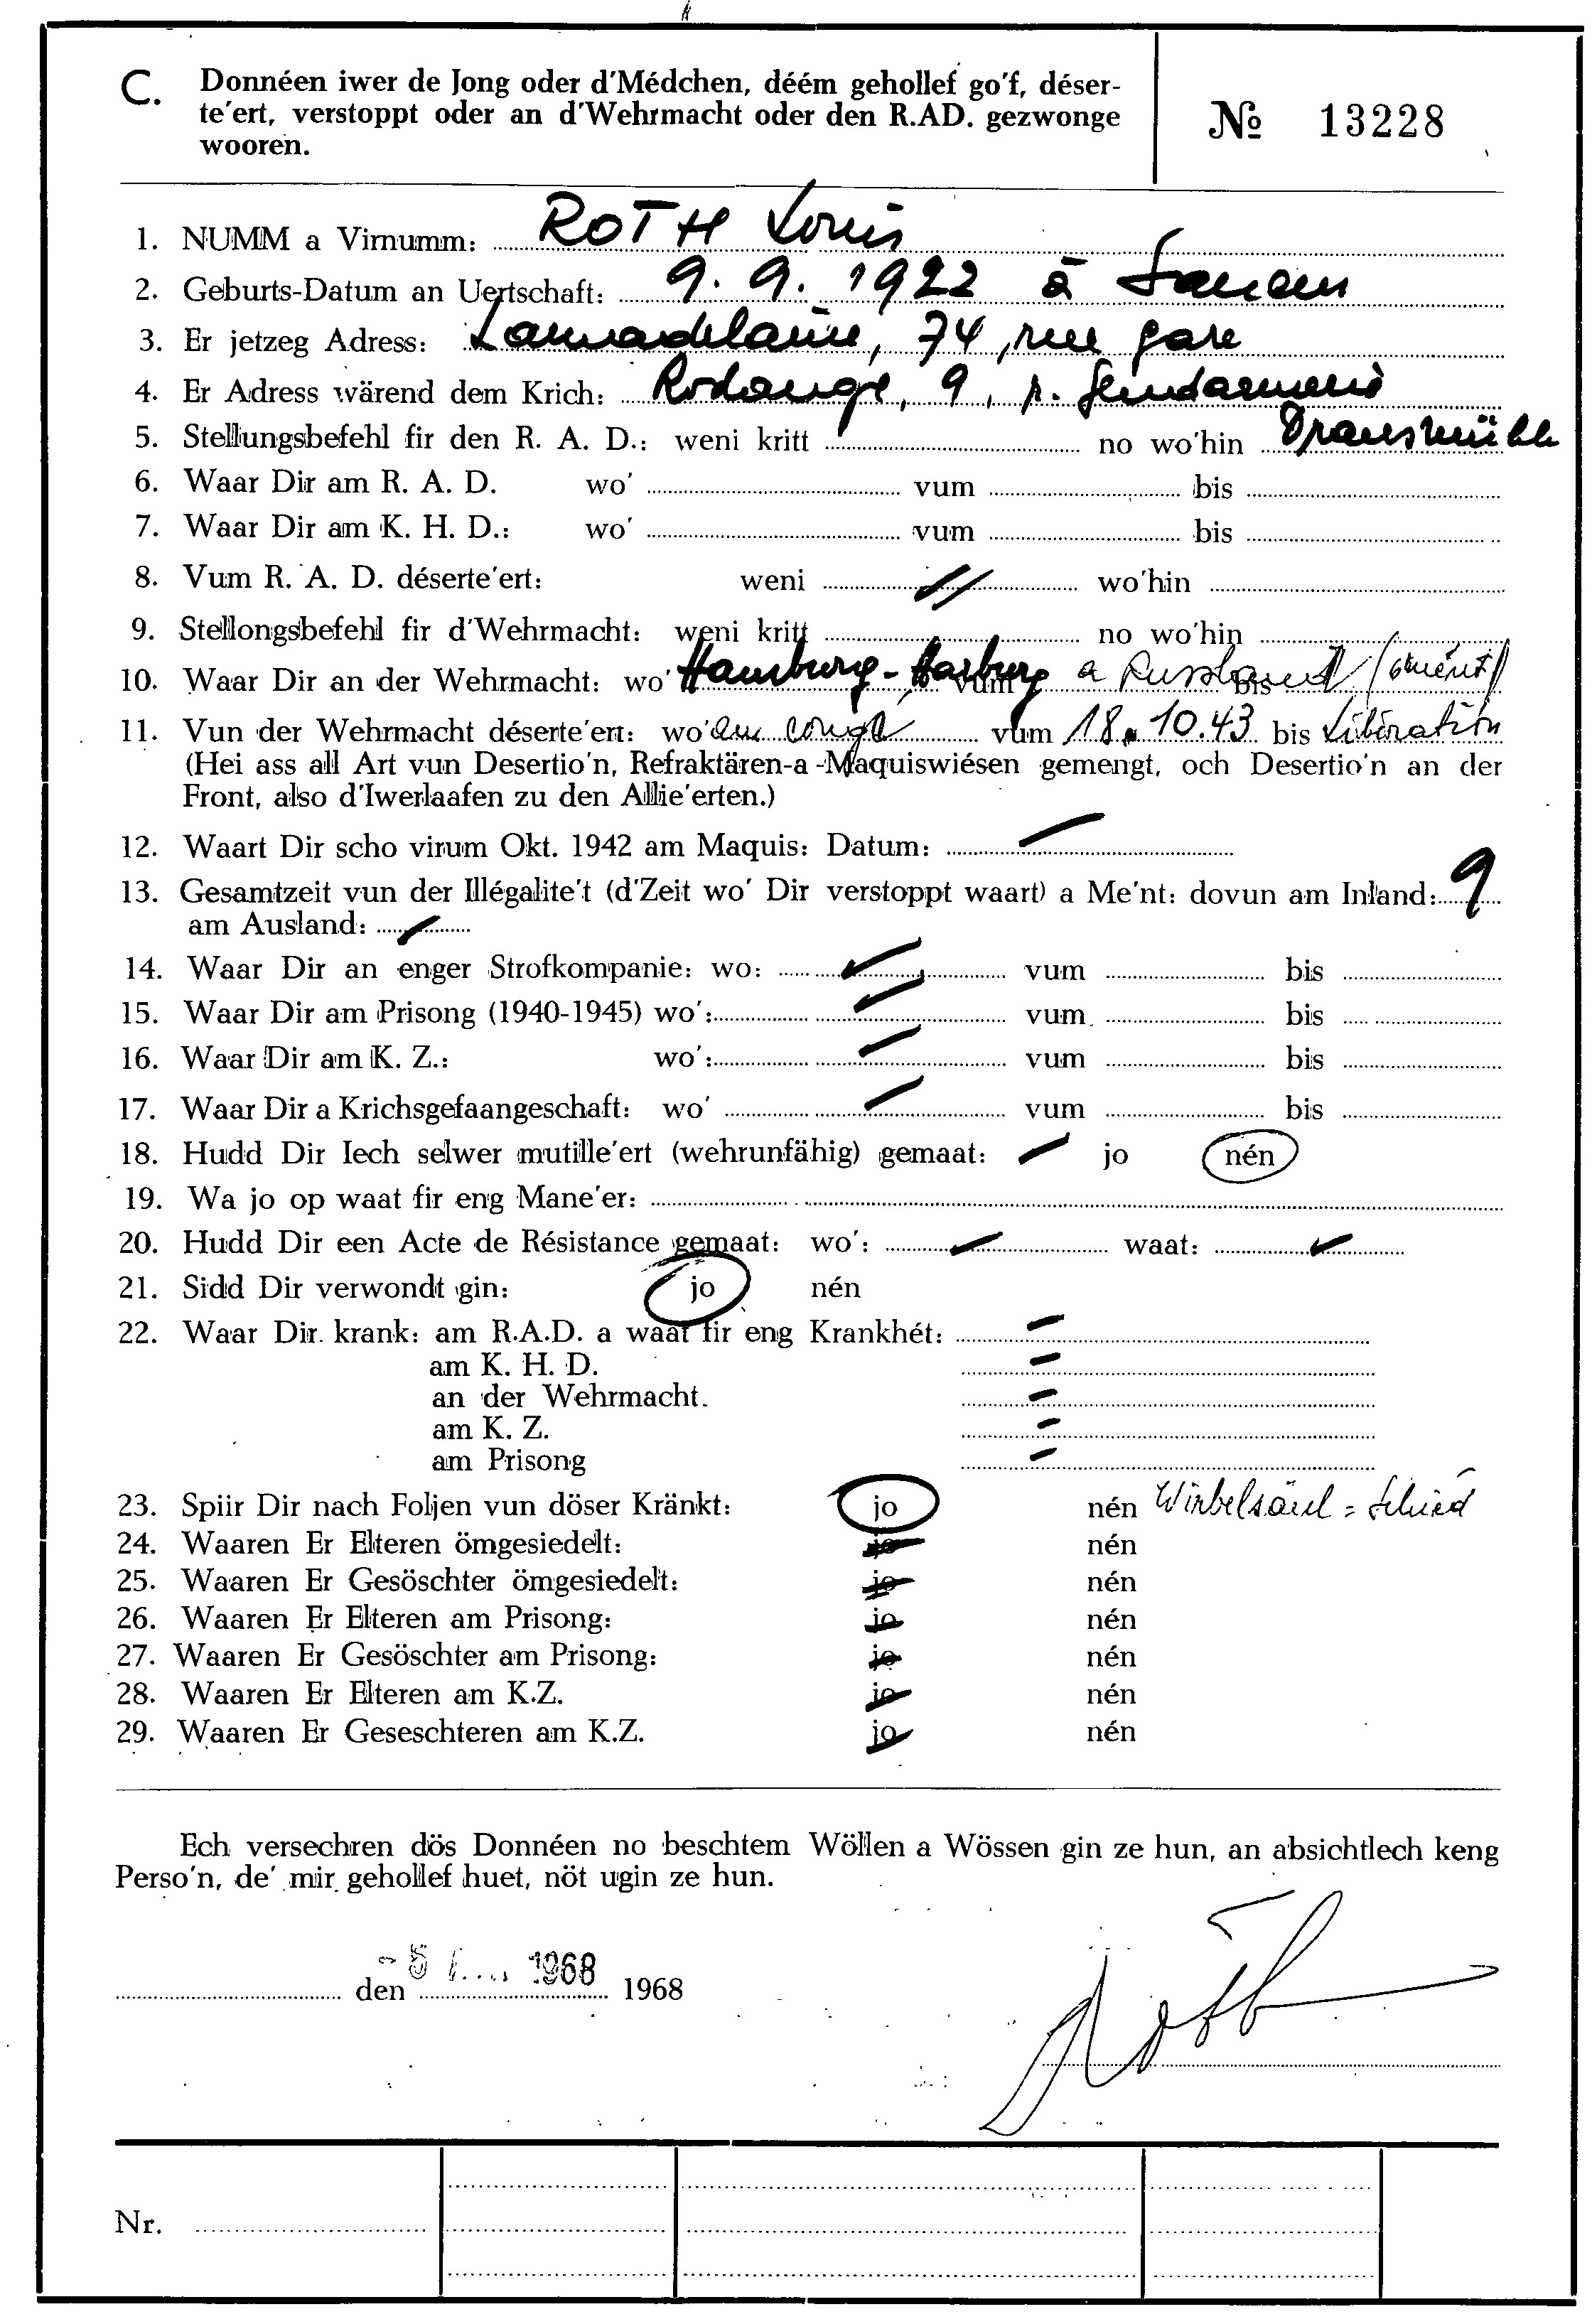 C. Donnéen iwer de Jong oder d'Médchen, déém gehollef go'f, déser-
te'ert, verstoppt oder an d'Wehrmacht oder den R.AD. gezwonge
wooren.
№ 13228
1. NUMM a Virnumm: ROTH Louis
2. Geburts-Datum an Uertschaft: 9. 9. 1922 à Sanem
3. Er jetzeg Adress: Lamadelaine, 74, rue gare
4. Er Adress wärend dem Krich: Rodange, 9, r. Gendarmerie
5. Stellungsbefehl fir den R. A. D.: weni kritt no wo'hin
6. Waar Dir am R. A. D. wo' vum bis
7. Waar Dir am K. H. D.: wo' vum bis
8. Vum R. A. D. déserte'ert: weni // wo'hin
9. Stellongsbefehl fir d'Wehrmacht: weni kritt no wo'hin
10. Waar Dir an der Wehrmacht: wo' Hamburg-Harburg vum a Russland bis
11. Vun der Wehrmacht déserte'ert: wo' au congé vum 18.10.43 bis Libération
(Hei ass all Art vun Desertio'n, Refraktären-a-Maquiswiésen gemengt, och Desertio'n an der
Front, also d'Iwerlaafen zu den Allie'erten.)
12. Waart Dir scho virum Okt. 1942 am Maquis: Datum: —
13. Gesamtzeit vun der Illégalite't (d'Zeit wo' Dir verstoppt waart) a Me'nt: dovun am Inland: 9
am Ausland: —
14. Waar Dir an enger Strofkompanie: wo: — vum bis
15. Waar Dir am Prisong (1940-1945) wo': — vum bis
16. Waar Dir am K. Z.: wo': — vum bis
17. Waar Dir a Krichsgefaangeschaft: wo' — vum bis
18. Hudd Dir Iech selwer mutille'ert (wehrunfähig) gemaat: — jo nén
19. Wa jo op waat fir eng Mane'er:
20. Hudd Dir een Acte de Résistance gemaat: wo': — waat: —
21. Sidd Dir verwondt gin: jo nén
22. Waar Dir krank: am R.A.D. a waat fir eng Krankhét: —
am K. H. D. —
an der Wehrmacht. —
am K. Z. —
am Prisong —
23. Spiir Dir nach Foljen vun döser Kränkt: jo nén Wirbelsäul =
24. Waaren Er Elteren ömgesiedelt: jo nén
25. Waaren Er Gesöschter ömgesiedelt: jo nén
26. Waaren Er Elteren am Prisong: jo nén
27. Waaren Er Gesöschter am Prisong: jo nén
28. Waaren Er Elteren am K.Z. jo nén
29. Waaren Er Geseschteren am K.Z. jo nén
Ech versechren dös Donnéen no beschtem Wöllen a Wössen gin ze hun, an absichtlech keng
Perso'n, de' mir gehollef huet, nöt ugin ze hun.
den 5 1968 1968
Roth
Nr.